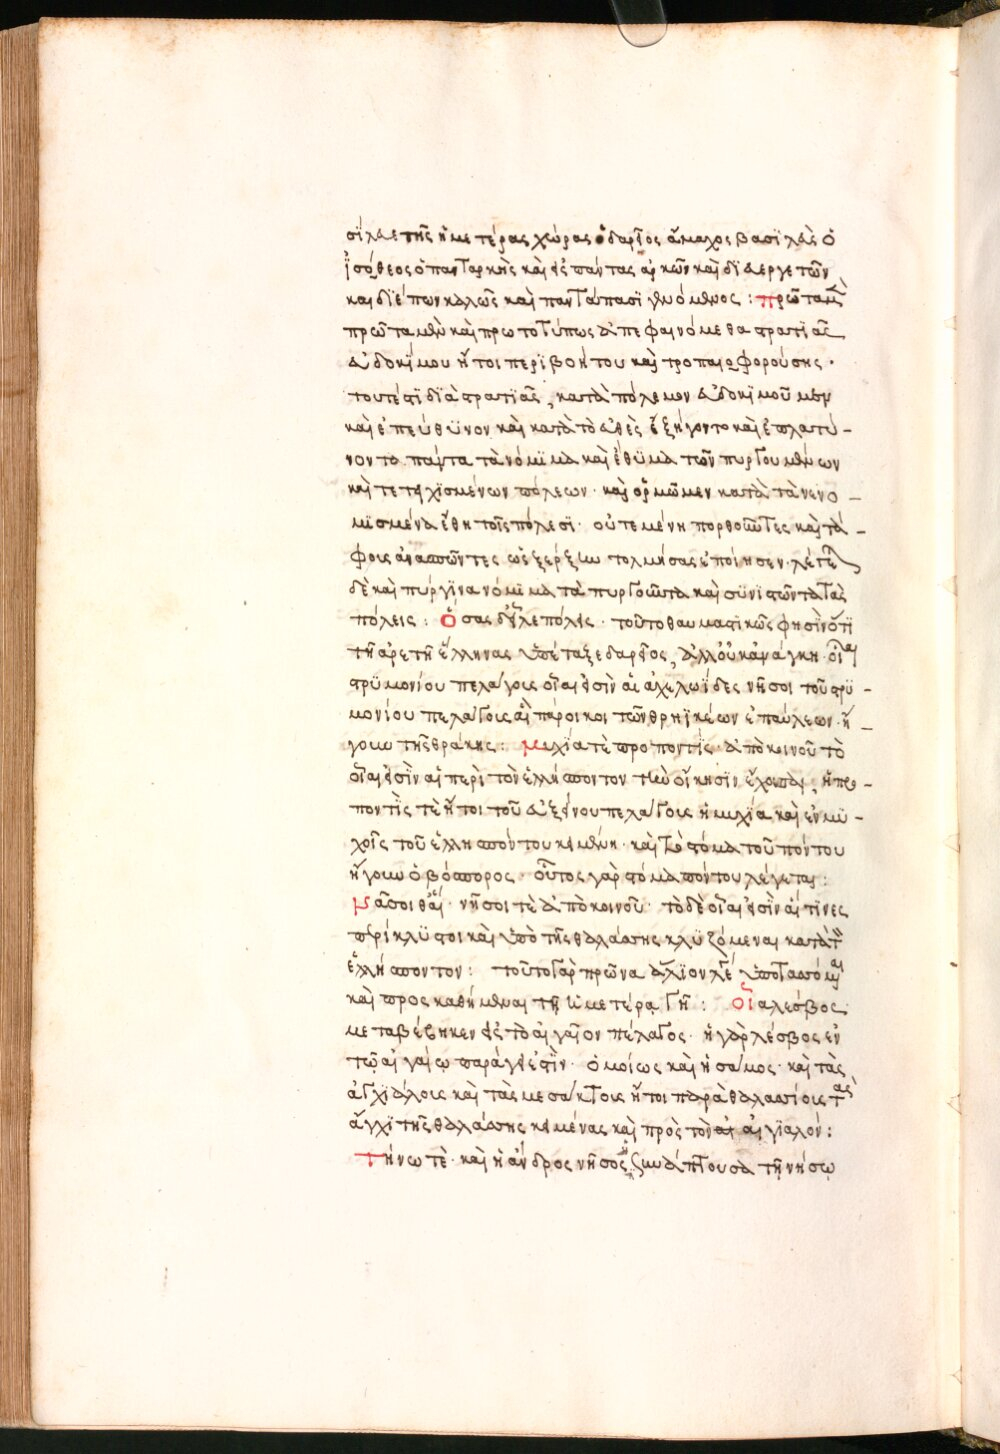 σίλευε τῆς ἡμετέρας χώρας ὁ δαρεῖος ἄμαχος βασϊλεὺς ὁ
ἰσόθεος ὁ πανταρκὴς καὶ εἰς πάντας ἀρκῶν καὶ δϊ ευεργετῶν
καὶ διέπων καλῶς καὶ πανταπασϊ γενόμενος : πρῶτα μὲν
πρῶτα μὲν καὶ πρωτοτύπως ἀπεφαινόμεθα στρατιᾶς
εὐδοκίμου ἤτοι περιβοήτου καὶ τροπαιοφορούσης ·
τουτέστι διὰ στρατιᾶς, κατὰ πόλεμον εὐδοκίμου μὲν
καὶ ἐπεύθϋνον καὶ κατὰ τὸ εὐθὲς ἐξήγοντο καὶ ἐπλατύ-
νοντο πάντα τὰ νόμιμα καὶ ἔθϋμα τῶν πυργουμένων
καὶ τετειχισμένων πόλεων · καὶ ὁρμῶμεν κατὰ τὰ νενο-
μϊσμένα ἔθη τοῖς πόλεσϊ · οὐ τεμένη πορθοῦντες καὶ τά-
φοις ἀνασπῶντες ὡς ξέρξην τολμήσας ἐποίησεν · λέγεται
δὲ καὶ πύργϊνα νόμιμα τὰ πυργοῦντα καὶ συνιστῶντα τὰς
πόλεις : ὅσας δ' εἷλε πόλεις · τοῦτο θαυμαστικῶς φησὶν ὅτι
τῇ ἀρετῇ ἕλληνας ὑπέταξε δαρεῖος, ἀλλ' οὐκ ἀνάγκη · οἷαι
στρϋμονίου πελάγους οἷαι εἰσὶν αἱ ἀχελωΐδες νῆσοι τοῦ στρϋ-
μονίου πελάγους αἱ πάροικοι τῶν θρηϊκέων ἐπαύλεων · ἤ-
γουν τῆς θράκης : μυχία τὲ προποντίς · ἀπὸ κοινοῦ τὸ
οἷαι εἰσὶν αἱ περὶ τὸν ἑλλήσποντον τὴν οἴκησϊν ἔχουσαι, ἡ προ-
ποντὶς τὲ ἤτοι τοῦ εὐξείνου πελάγους ἡ μυχία καὶ ἐν μϋ-
χοῖς τοῦ ἑλλησπόντου κειμένη · καὶ τὸ στόμα τοῦ πόντου
ἤγουν ὁ βόσπορος · οὗτος γὰρ στόμα πόντου λέγεται :
νᾶσοι θ' αἳ · νῆσοι τὲ ἀπὸ κοινοῦ · τὸ δὲ οἷαι εἰσὶν αἵ τινες
περίκλϋστοι καὶ ὑπὸ τῆς θαλάσσης κλϋζόμεναι κατὰ τὸν
ἑλλήσποντον : τοῦτο γὰρ πρῶνα ἅλιον λέγει ὑποτασσόμεναι
καὶ προσκαθήμεναι τῇ ἡμετέρα γῆ : οἵα λέσβος
μεταβέβηκεν εἰς τὸ αἰγαῖον πέλαγος · ἡ γὰρ λέσβος ἐν
τῷ αἰγαίῳ παράγει ἐστὶν · ὁμοίως καὶ ἡ σάμος · καὶ τὰς
ἀγχιάλους καὶ τὰς μεσάκτους ἤτοι παραθαλασσίους τὰς
ἄγχι τῆς θαλάσσης κειμένας καὶ πρὸς τὸν αἰγϊαλόν :
τήνω τὲ · καὶ ἡ ἄνδρος νῆσος ἡ συνάπτουσα τῇ νήσῳ